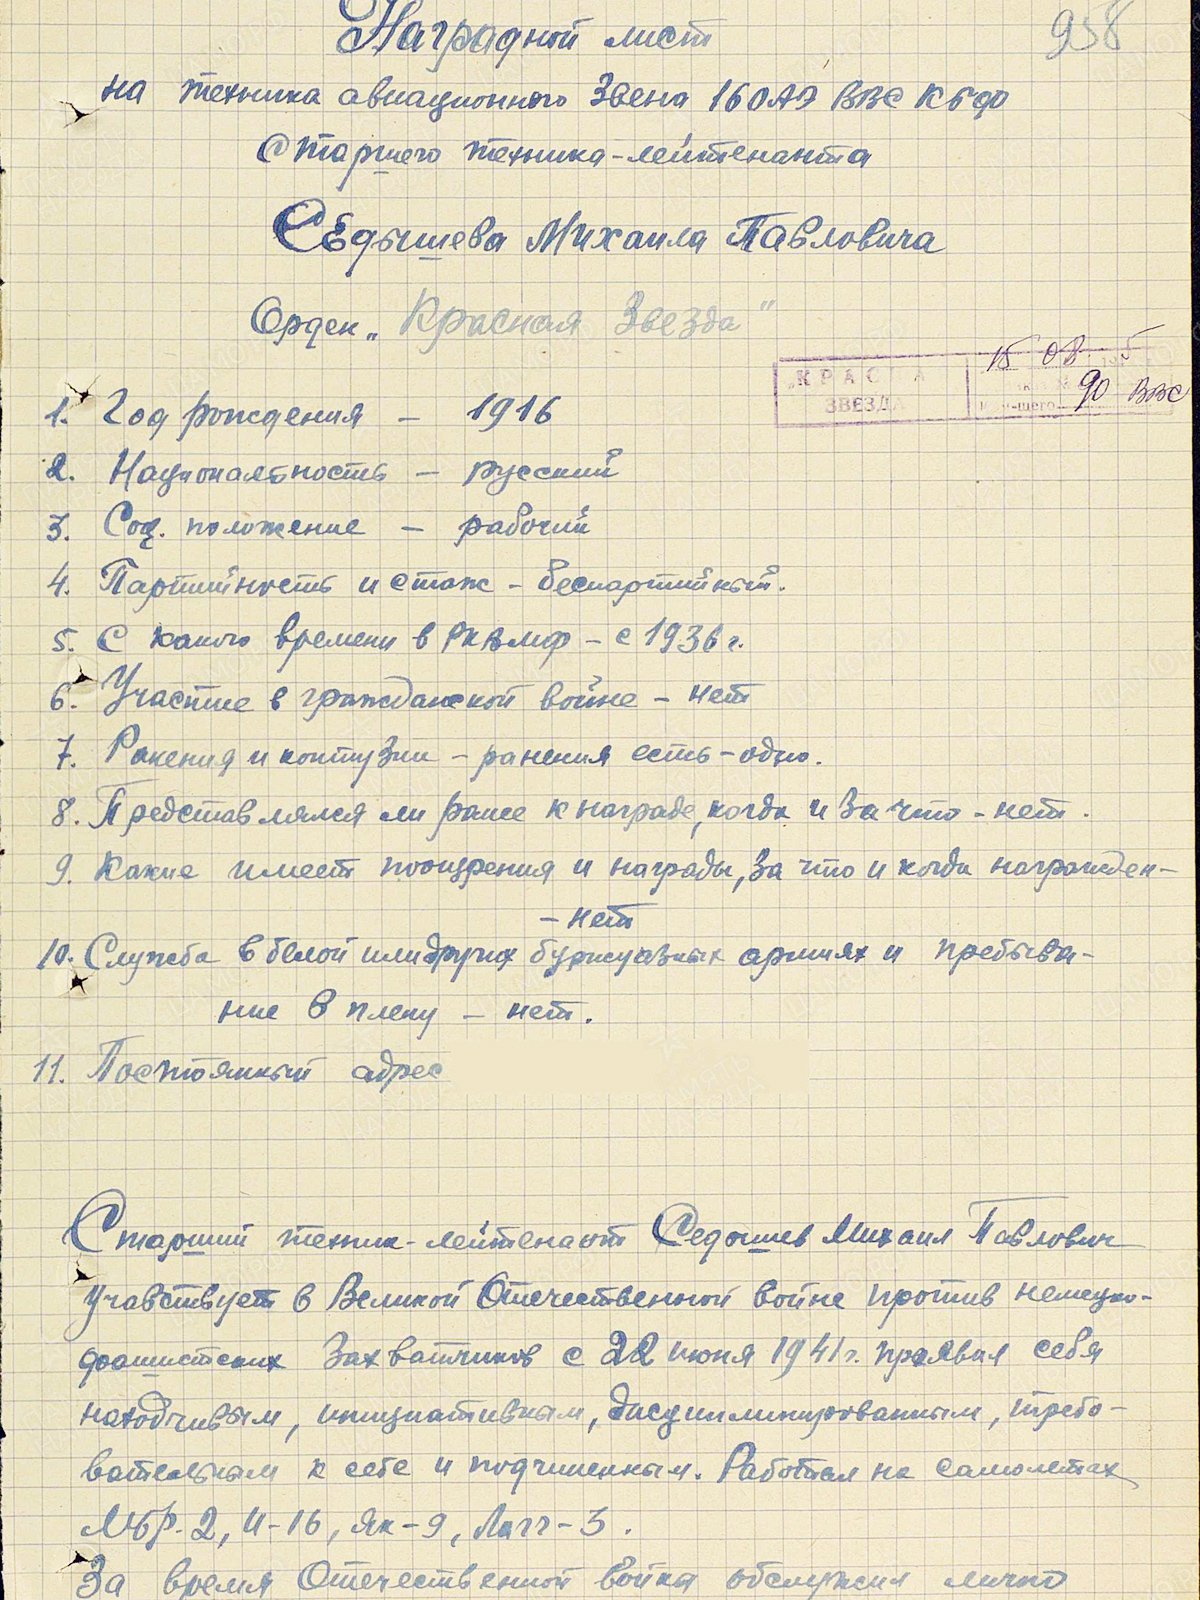 958
Наградной лист
на техника авиационного звена 160АЭ ВВС КБФ
Старшего техника-лейтенанта
Седышева Михаила Павловича
Орден „Красная Звезда"
15 08 5
„КРАСНА
ЗВЕЗДА
90 ВВС
1. Год рождения – 1916
2. Национальность – русский
3. Соц. положение – рабочий
4. Партийность и стаж – беспартийный.
5. С какого времени в РКВМФ – с 1936 г.
6. Участие в гражданской войне – нет
7. Ранения и контузии – ранения есть – одно.
8. Представлялся ли ранее к награде, когда и за что – нет.
9. Какие имеет поощрения и награды, за что и когда награжден –
– нет
10. Служба в белой или других буржуазных армиях и пребыва-
ние в плену – нет.
11. Постоянный адрес
Старший техник-лейтенант Седышев Михаил Павлович
Учавствует в Великой Отечественной войне против немецко-
фашистских захватчиков с 22 июня 1941 г. проявил себя
находчивым, инициативным, дисциплинированным, требо-
вательным к себе и подчиненным. Работал на самолетах
МБР-2, И-16, Як-9, Лагг-3.
За время Отечественной война обслужил лично